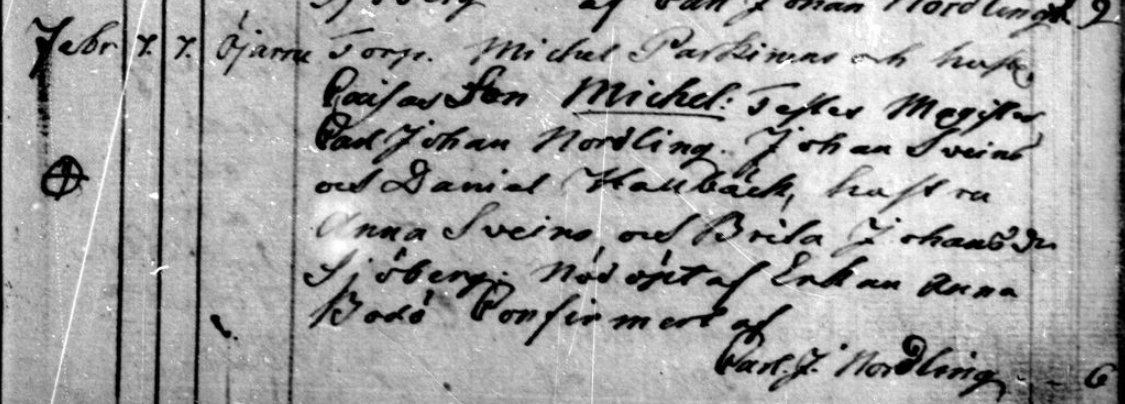 Sjöberg af Carl Johan Nordling 9
Febr 7. 7. Öjarne Torp. Michel Parkinens och hustr.
Caisas Son Michel: Testes Magister
Carl Johan Nordling. Johan Sveins
och Daniel Hallbäck, hustru
Anna Sveins, och Brita Johans dr
Sjöberg. Nöddöpt af Enkan Anna
Bodö Confirmerat af
Carl. J. Nordling 6